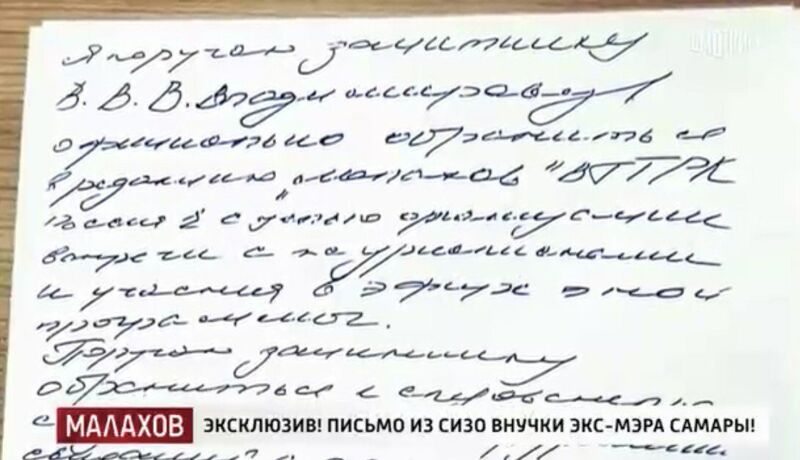 Я поручаю защитнику
В. В. В. Владимировой
официально обратиться
в редакцию "Малахов" ВГТРК
Россия 1 с целью организации
встречи с журналистами
и участия в эфире этой
программы.
Поручаю защитнику
обратиться к следователю
с
МАЛАХОВ
ЭКСКЛЮЗИВ! ПИСЬМО ИЗ СИЗО ВНУЧКИ ЭКС-МЭРА САМАРЫ!